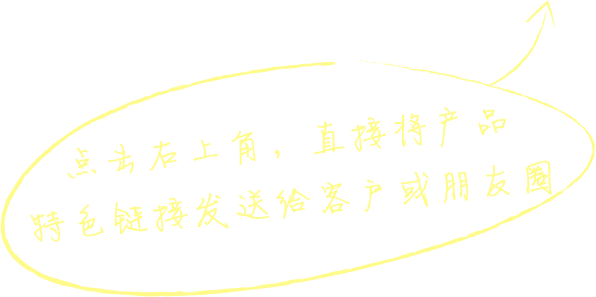 点击右上角，直接将产品
特色链接发送给客户或朋友圈